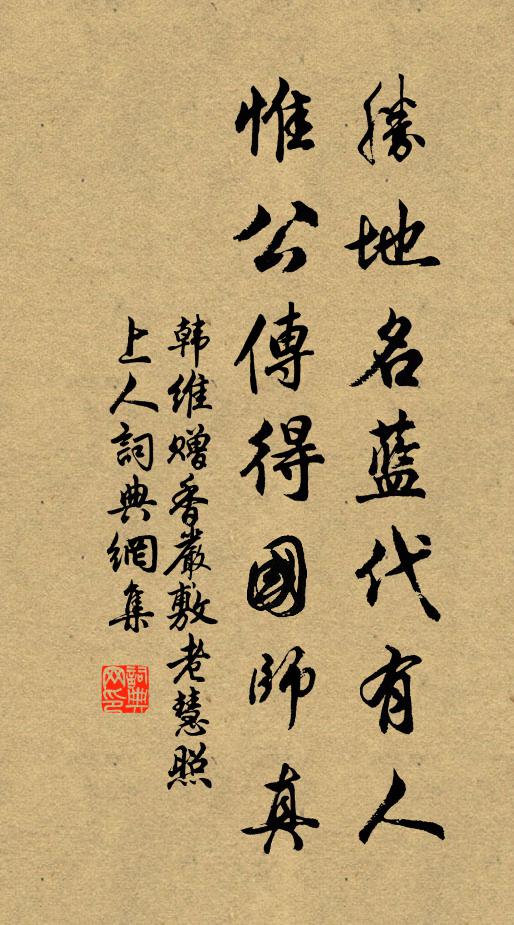 勝地名藍代有人
惟公傳得國師真
韩維贈香嚴敷老慧照
上人詞典網集
詞典
网印